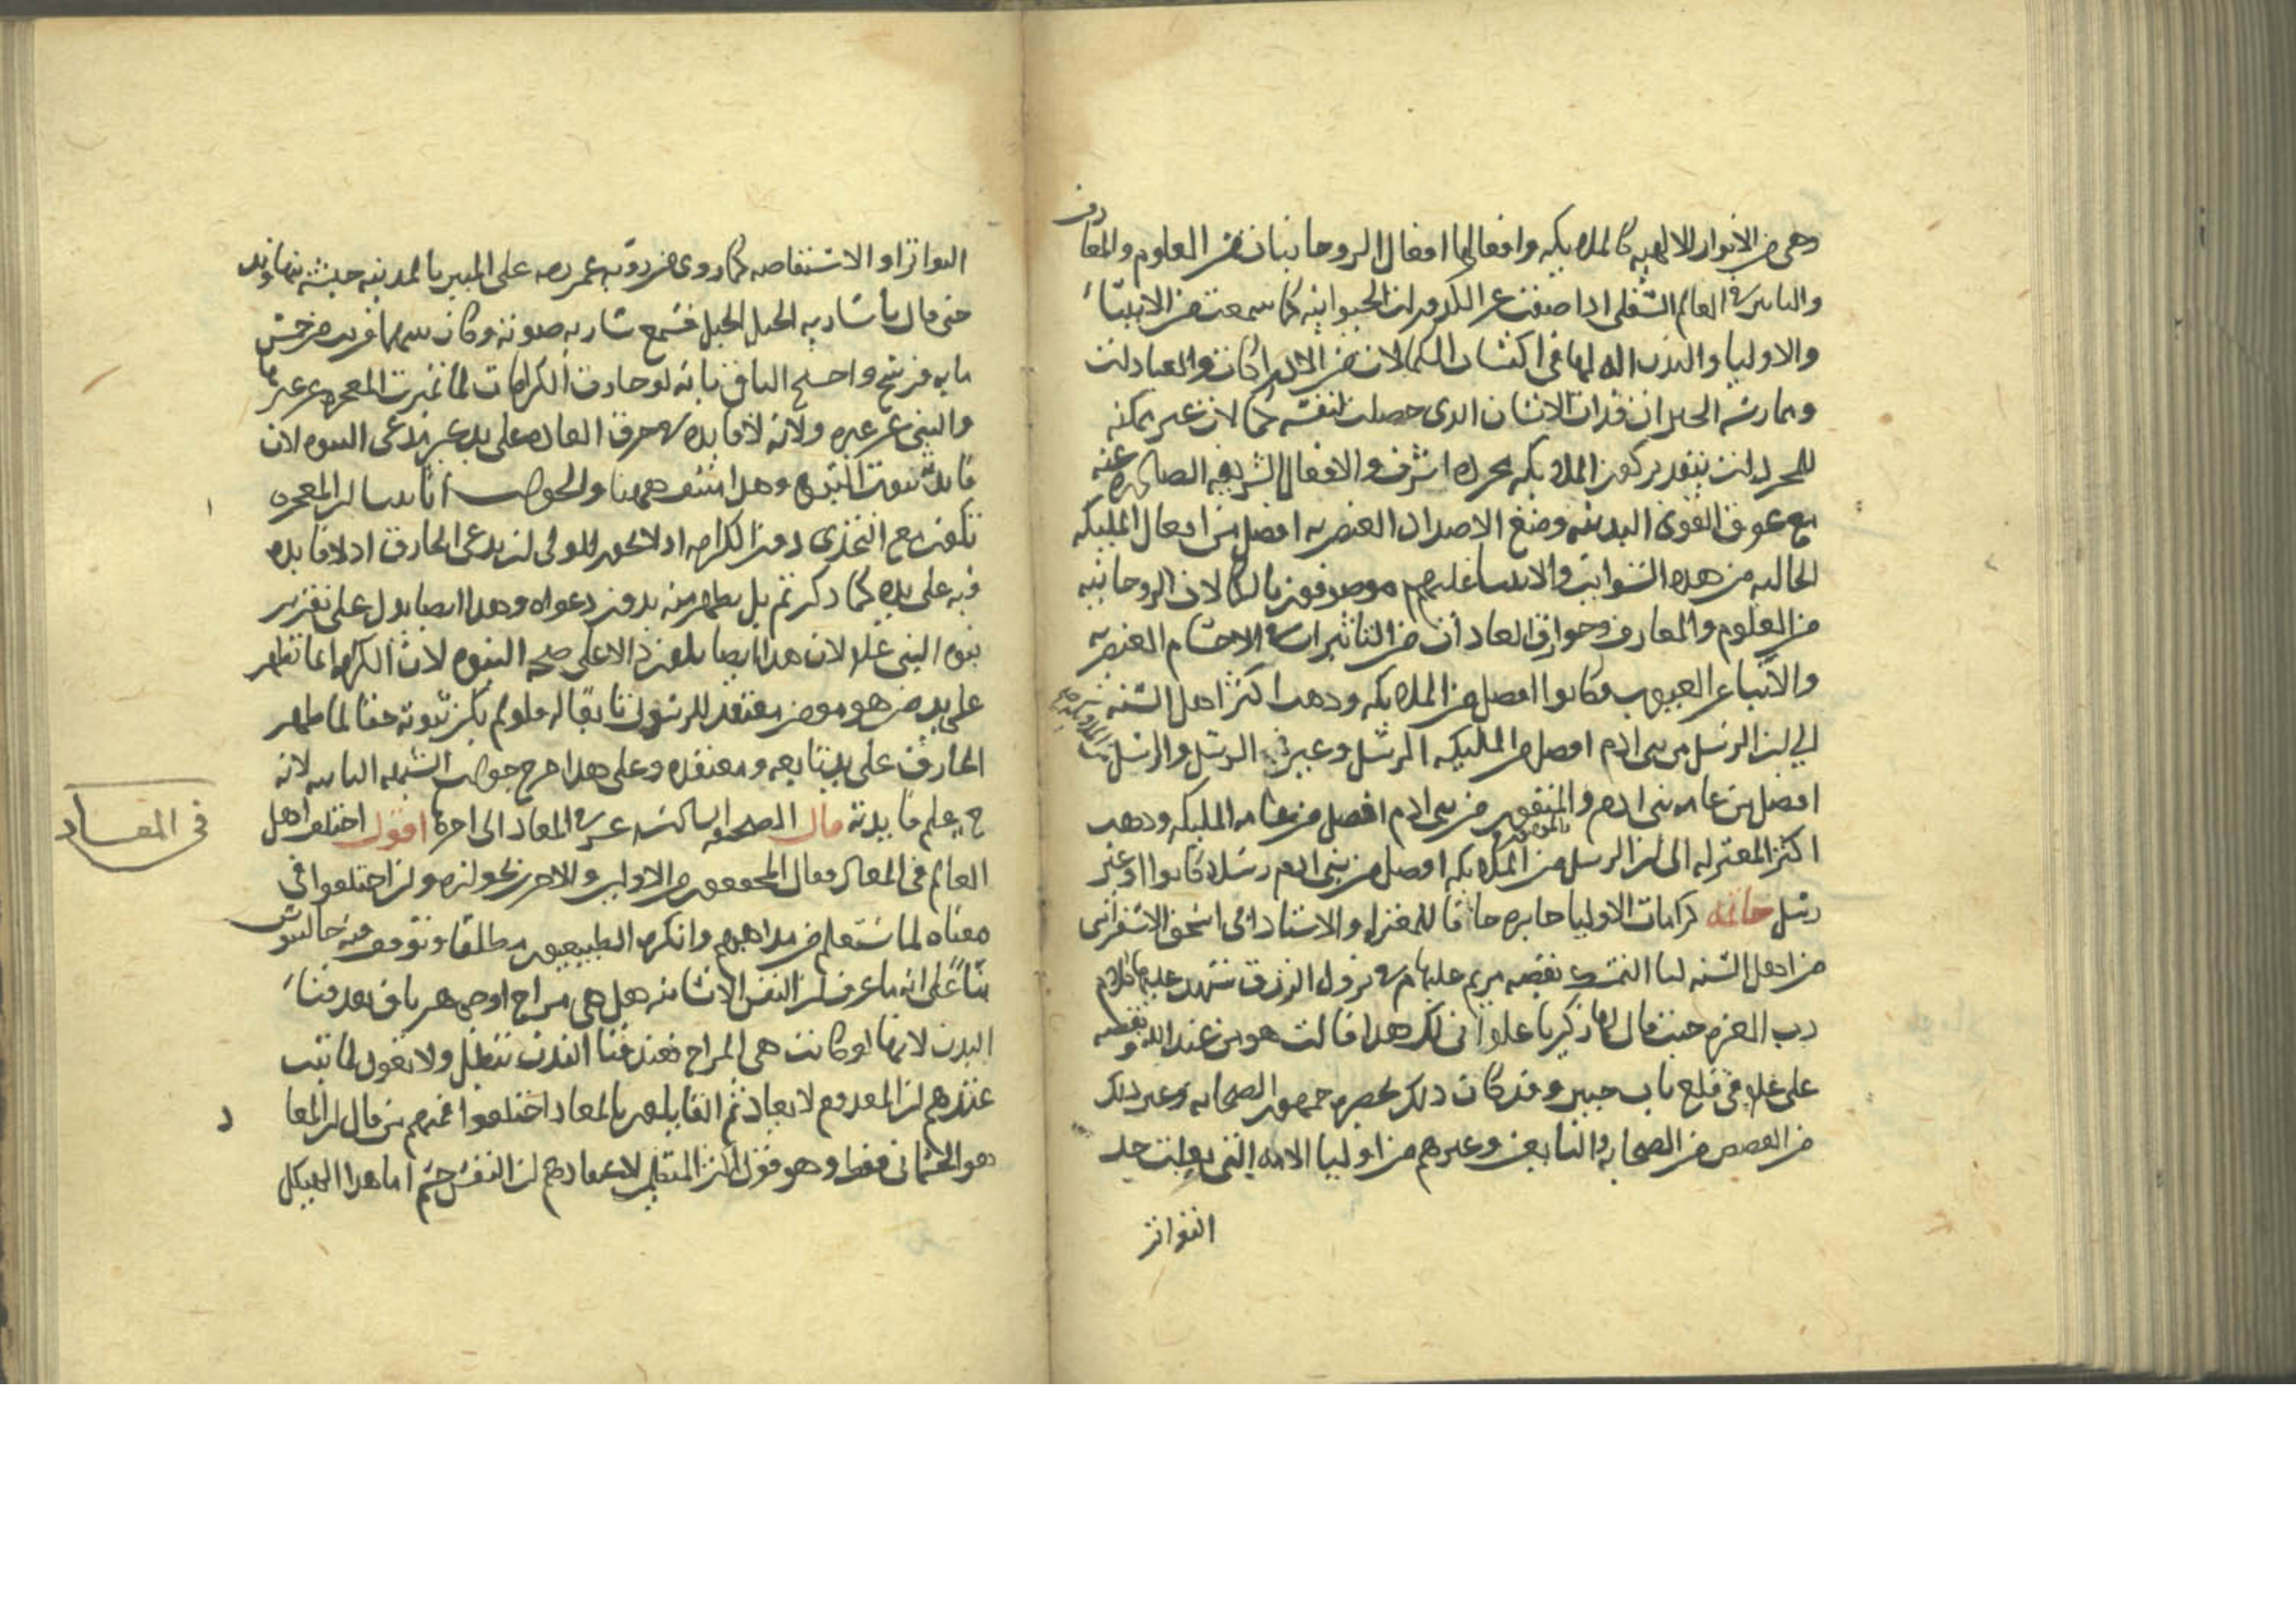 وهي من الانوار الالهيه كالملايكه وافعالها افعال الروحانيات من العلوم والمعارف
والناس في العالم السفلي اذا صفت عن الكدورات الحيوانيه كما سمعت من الانبياء
والاوليا والبدن اله لها في اكتساب الكمالات من الادراكات والعبادات
وممارسة الخيرات فذات الانسان الذي حصلت لنفسه كمالات غير ممكنه
للمجردات بتقدير كون الملايكه مجرده اشرف والافعال الشريفه الصادره عنه
مع عوق القوى البدنيه ومنع الاضداد العنصريه افضل من افعال المليكه
الخاليه من هذه الشوايب والانبيا عليهم موصوفون بالكمالات الروحانيه
من العلوم والمعارف وخوارق العادات من التاثيرات في الاجسام العنصريه
والانباء عن الغيوب فكانوا افضل من الملايكه وذهب اكثر اهل السنه
الي ان الرسل من بني ادم افضل من المليكه الرسل وغير الرسل والرسل من الملايكه
افضل من عامه بني ادم والمتقون من بني ادم افضل من عامه المليكه وذهب
اكثر المعتزله الى ان الرسل من الملايكه افضل من بني ادم رسلا كانوا او غير
رسل خاتمه كرامات الاوليا جايزه خلافا للمعتزله والاستاذ ابي اسحق الاسفرايني
من اهل السنه لنا التمسك بقصه مريم عليها م في نزول الرزق شهد عليها كلام
رب العزه حيث قال لها زكريا علم انى لك هذا قالت هو من عند الله وبقصه
علي علم في قلع باب خيبر وقد كان ذلك بحضره جمهور الصحابه وغير ذلك
من القصص من الصحابه والتابعين وغيرهم من اوليا الامه التي بلغت حد
التواتر
التواتر او الاستفاضه كما روي من رؤيه عمر رضه على المنبر بالمدينه جيشه بنهاوند
حتى قال يا ساريه الجبل الجبل فسمع ساريه صوته وكان بينهما قريب من خمس
مايه فرسخ واحتج النافي بانه لو جازت الكرامات لما تميزت المعجزه عن غيرها
والنبي عن غيره ولانه لا فايده في خرق العاده على يد غير مدعي النبوه لان
فايدته ثبوت النبوه وهذا منتف ههنا والجواب انا بينا ان المعجزه
تكون مع التحدي دون الكرامه اذ لا يجوز للولي ان يدعي الخارق اذ لا فايده
فيه على يده كما ذكرتم بل يظهر منه بدون دعواه وهذا ايضا يدل على تقرير
نبوه النبي علم لان هذا ايضا يلون دالا على صحه النبوه لان الكرامه انما تظهر
على يد من هو مومن معتقد للرسول تابعا له فلو لم يكن ثبوته حقا لما ظهر
الخارق على يد تابعه ومعتقده وعلى هذا خرج جواب الشبهه الثانيه لانه
ح يعلم فايدته قال الصحيفه الساكنه عشر في المعاد الى اخره اقول اختلف اهل
في المعاد
العالم في المعاد فقال المحققون من الاولين والاخرين بجوازه وان اختلفوا في
معناه لما ستعلم من مذاهبهم وانكره الطبيعيون مطلقا وتوقف فيه جالينوس
بناءً على انه ما عرف ان النفس الانسانيه هل هي مزاج او جوهر باق بعد فناء
البدن لانها لو كانت هي المزاج فعند فنا البدن تبطل ولا تعود لما ثبت
عندهم ان المعدوم لا يعاد ثم القايلون بالمعاد اختلفوا فمنهم من قال ان المعاد
هو الجسماني فقط وهو قول اكثر المتكلمين لاعتقادهم ان النفس جسم اما هذا الهيكل